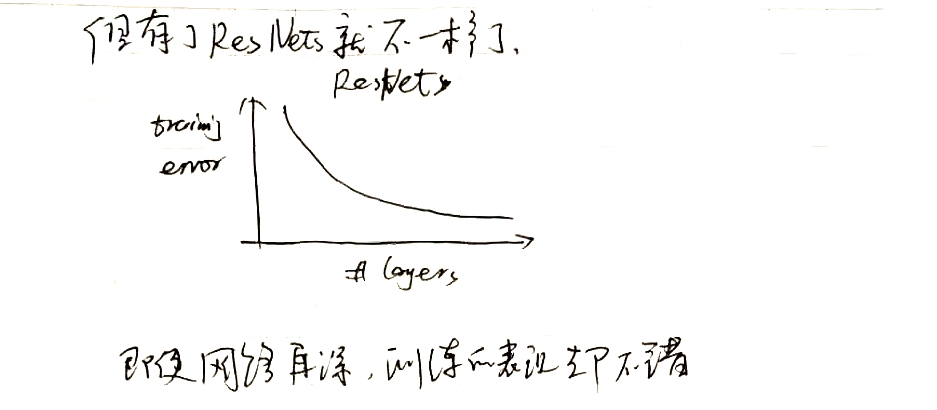 但有了ResNets就不一样了.
ResNets
training
error
# layers
即使网络再深,训练的表现却不错